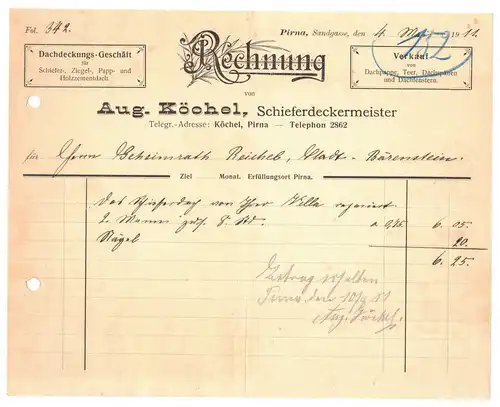 Fol. 342.
Pirna, Sandgasse, den 4. 1911.
152
Dachdeckungs-Geschäft
für
Schiefer-, Ziegel-, Papp- und
Holzzementdach.
Rechnung
Verkauf
von
Dachpappe, Teer, Dachspänen
und Dachfenstern.
von
Aug. Köchel, Schieferdeckermeister
Telegr.-Adresse: Köchel, Pirna — Telephon 2862
für Herrn Geheimrath Reichel, Stadt-Bärenstein.
Ziel Monat. Erfüllungsort Pirna.
das Schieferdach von Ihrer Villa repariert
2 Mann 8 a 6. 05.
Nägel 20.
6. 25.
Betrag erhalten
Pirna den 10/
Aug. Köchel